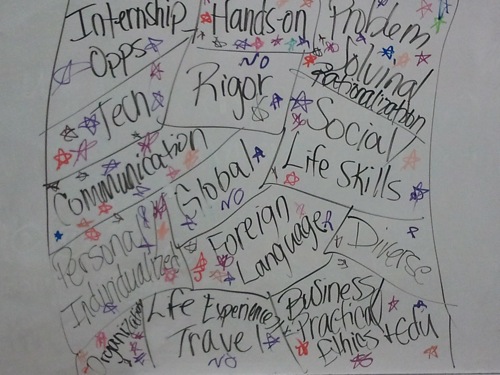 Internship
Opps
Hands-on
Problem
Solving
rationalization
Tech
NO
Rigor
Social/
Life Skills
Communication
Global
NO
Foreign
Language
Diverse
Personal
Individualized
Organization
Life Experience/
Travel
NO
Business/
Practical
Ethics + edu